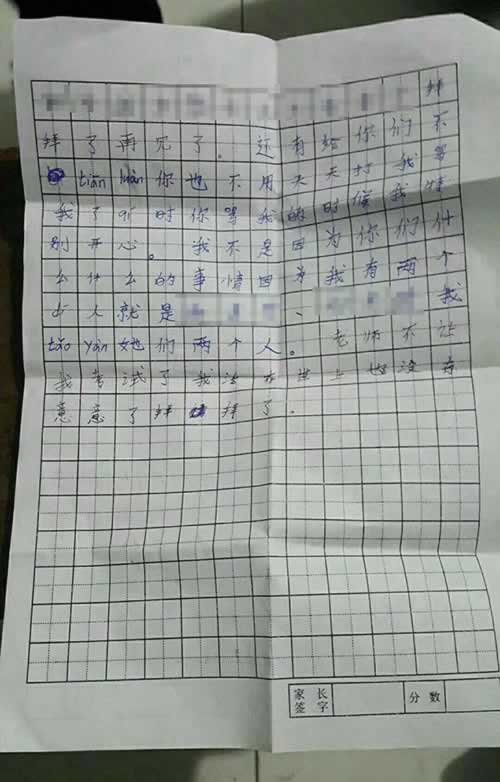 拜
拜了再见了。还有给你们不
tiān luàn 你也不用天天打我骂
我了听时你骂我的时候我特
别开心。我不是因为你们什
么什么的事情因为我有两个
人就是、我
tǎo yàn 她们两个人。老师不让
我考试了我活在世上也没有
意意了拜拜了.
家长签字 分数